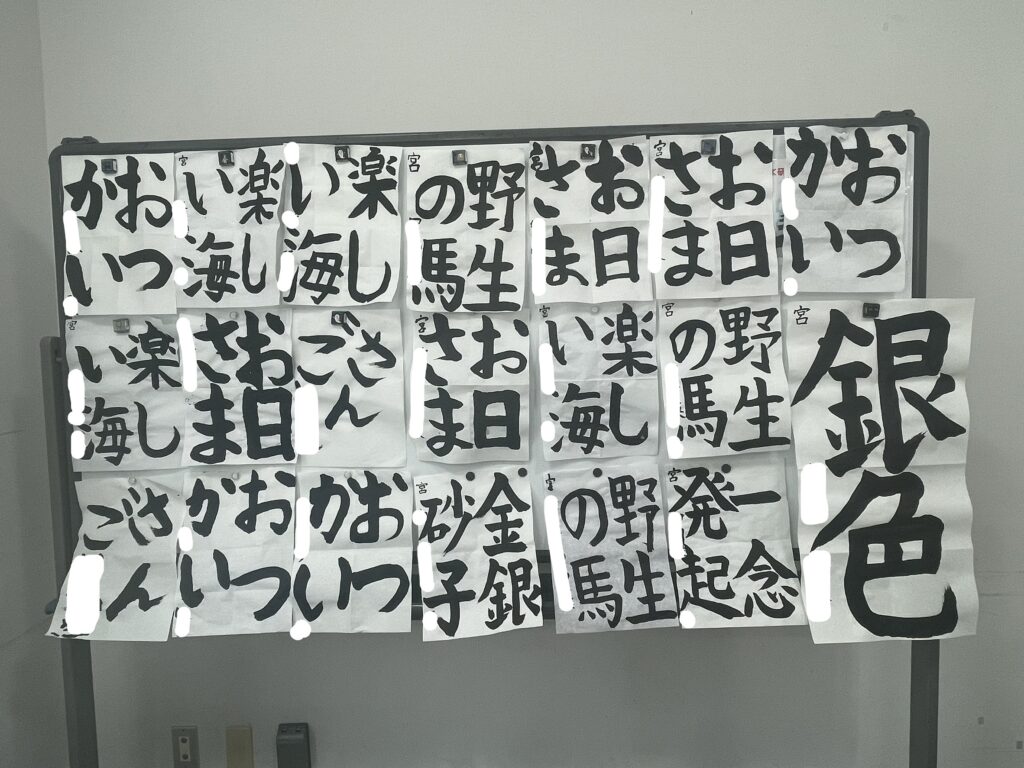 おつ
かい
楽し
い海
宮
楽し
い海
野生
の馬
宮
お日
さま
宮
お日
さま
宮
おつ
かい
楽し
い海
宮
お日
さま
さん
ご
お日
さま
宮
楽し
い海
宮
野生
の馬
宮
銀色
宮
さん
ご
おつ
かい
おつ
かい
金銀
砂子
宮
野生
の馬
宮
一念
発起
宮